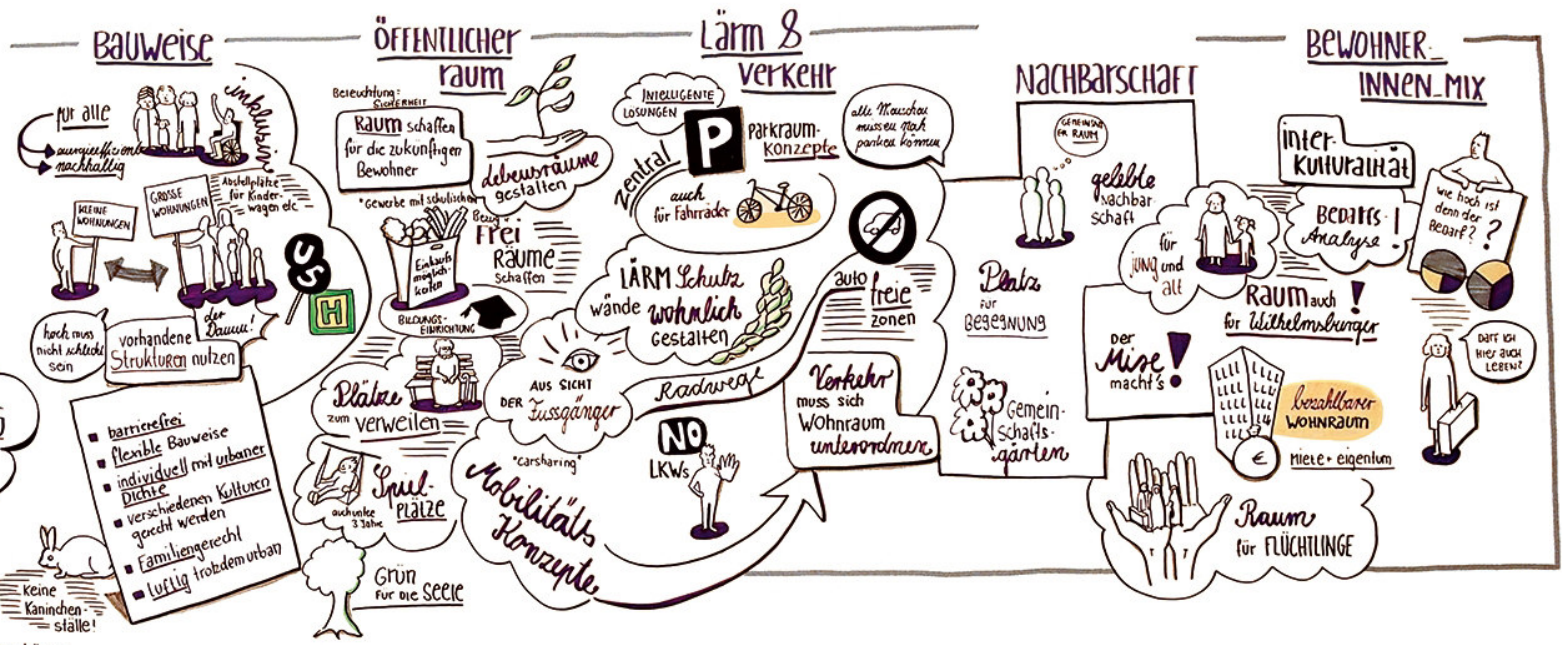 BAUWEISE
für alle
energieeffizient
nachhaltig
inklusiv
KLEINE
WOHNUNGEN
GROSSE
WOHNUNGEN
Abstellplätze
für Kinder-
wagen etc
US
H
hoch muss
nicht schlecht
sein
vorhandene
Strukturen nutzen
barrierefrei
flexible Bauweise
individuell mit urbaner
DICHTE
verschiedenen Kulturen
gerecht werden
Familiengerecht
luftig trotzdem urban
Keine
Kaninchen-
ställe!
ÖFFENTLICHER
raum
Beleuchtung:
SICHERHEIT
RAUM schaffen
für die zukünftigen
Bewohner
Lebensräume
gestalten
"Gewerbe mit schulischen
Bezug"
Frei
RÄUME
schaffen
Einkaufs
möglich-
keiten
BILDUNGS-
EINRICHTUNG
Plätze
zum verweilen
Spiel-
PLÄTZE
auch unter
3 Jahre
Grün
FÜR DIE SEELE
Lärm &
verkehr
INTELLIGENTE
LÖSUNGEN
zentral
P
parkraum-
konzepte
auch
für Fahrräder
alle Menschen
müssen nah
parken können
LÄRM Schutz
wände wohnlich
Gestalten
auto freie
zonen
AUS SICHT
DER Fussgänger
Radwege
"carsharing"
NO
LKWs
Mobilitäts
Konzepte
Verkehr
muss sich
Wohnraum
unterordnen
NACHBARSCHAFT
GEMEINSAM
ER RAUM
gelebte
Nachbar-
schaft
für
jung und
alt
Platz
für
BEGEGNUNG
Der
Mixe
macht's!
Gemein-
schafts-
gärten
BEWOHNER_
INNEN_MIX
inter-
Kulturalität
BEDARFS-
Analyse!
wie hoch ist
denn der
Bedarf?
?
RAUM auch !
für Wilhelmsburger
Darf ich
hier auch
LEBEN?
bezahlbarer
WOHNRAUM
€
Miete + eigentum
Raum
für FLÜCHTLINGE